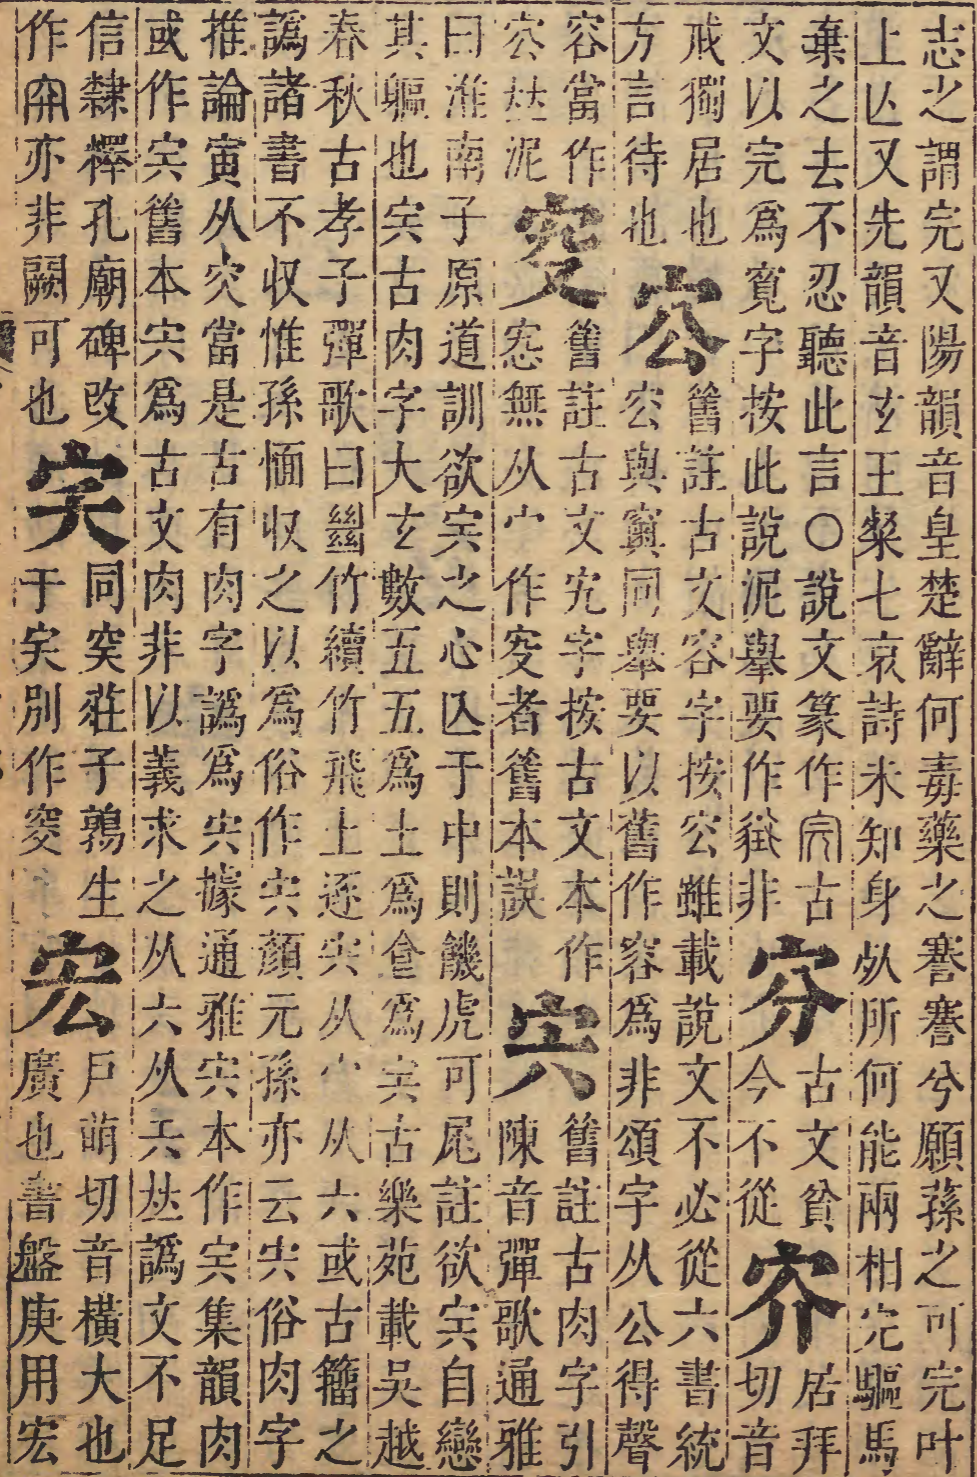 志之謂完又陽韻音皇楚辭何毒藥之謇謇兮願蓀之可完叶
上亾又先韻音玄王粲七哀詩未知身𣦸所何能兩相完驅馬
棄之去不忍聽此言○說文篆作古
文以完爲寬字按此說泥舉要作非
㝏
古文貧
今不從
𡧋
居拜
切音
戒獨居也
方言待也
㝐
舊註古文容字按㝐雖載說文不必從六書統
㝐與同舉要以舊作容爲非頌字从公得聲
容當作
㝐𠀤泥
舊註古文宄字按古文本作
無从宀作者舊本誤
宍
舊註古肉字引
陳音彈歌通雅
曰淮南子原道訓欲宍之心亾于中則饑虎可尾註欲宍自戀
其軀也宍古肉字大玄數五五爲土爲會爲宍古樂苑載吳越
春秋古孝子彈歌曰㡭竹續竹飛土逐宍从宀从六或古籀之
譌諸書不収惟孫愐収之以爲俗作宍顏元孫亦云宍俗肉字
推論寅从穴當是古有肉字譌爲宍據通雅宍本作宍集韻肉
或作宍舊本宍爲古文肉非以義求之从六从𠀤譌文不足
信隸釋孔廟碑攺
作亦非闕可也
宎
同突莊子鶉生
于宎別作窔
宏
戶萌切音橫大也
廣也書盤庚用宏